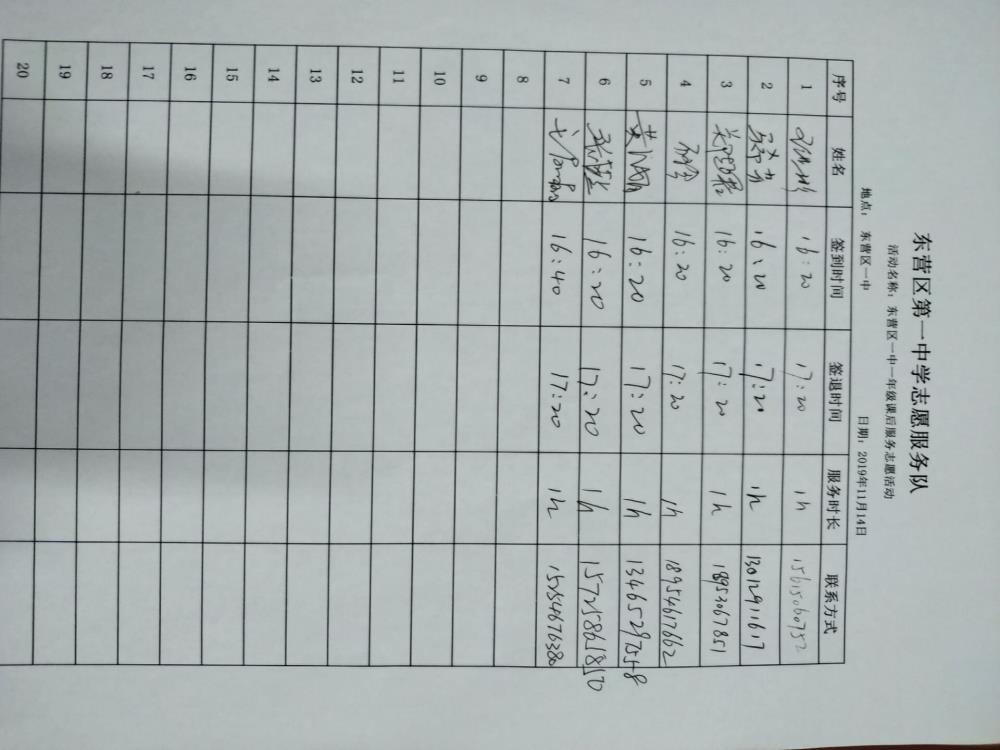 东营区第一中学志愿服务队
活动名称：东营区一中一年级课后服务志愿活动
地点：东营区一中 日期：2019年11月14日
序号 姓名 签到时间 签退时间 服务时长 联系方式
1 16:20 17:20 1h 15615060752
2 16:20 17:20 1h 13012911617
3 16:20 17:20 1h 18953067851
4 16:20 17:20 1h 18954617662
5 16:20 17:20 1h 13465297558
6 16:20 17:20 1h 15725861850
7 16:40 17:20 1h 15254676380
8
9
10
11
12
13
14
15
16
17
18
19
20